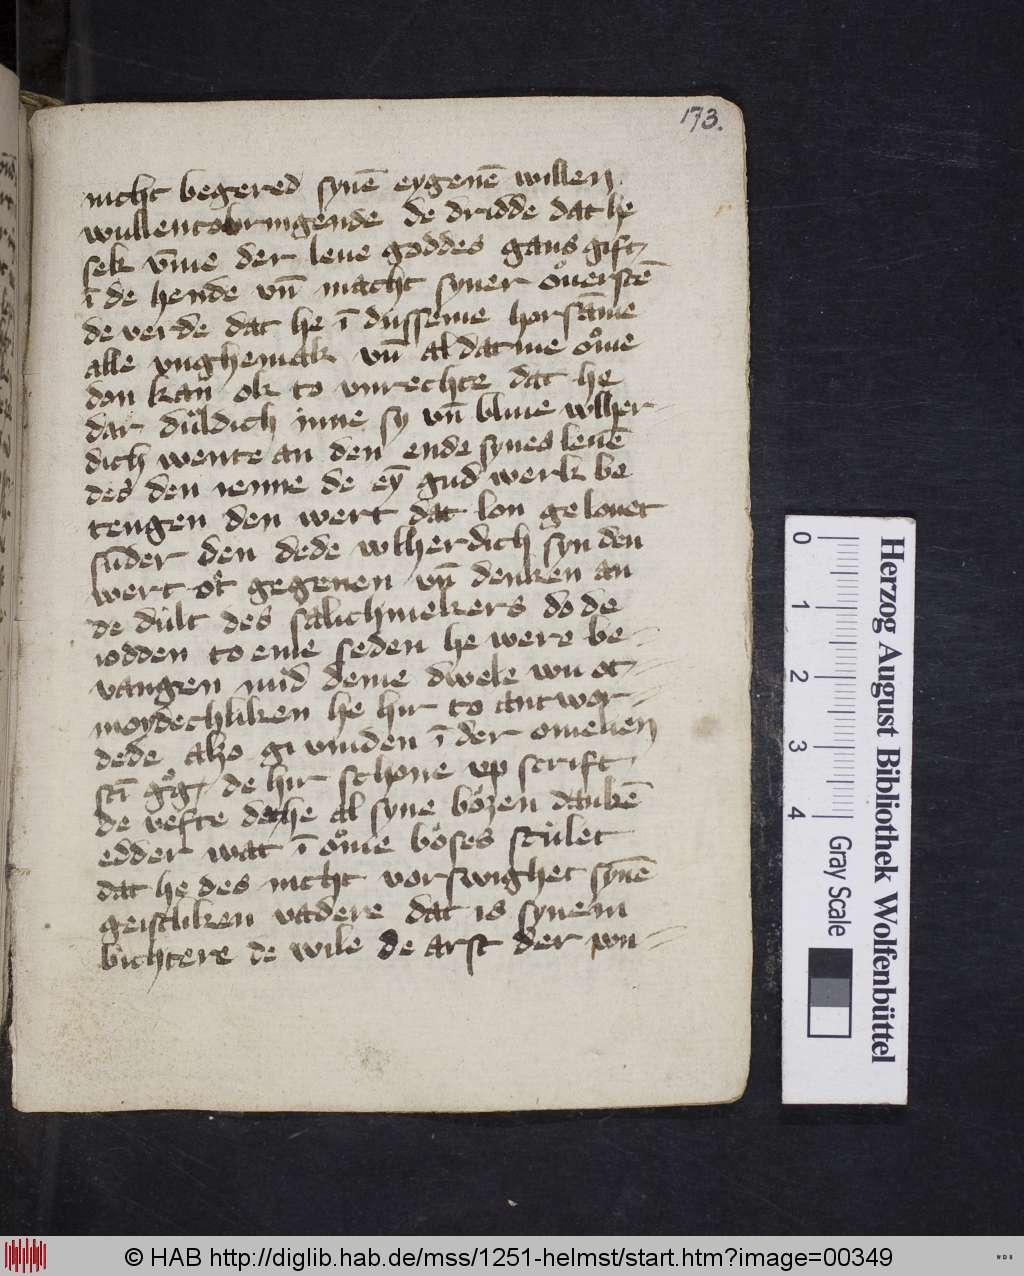 173.
nicht begered synē eygenē willen
wullencobringende de dridde dat he
sek v̄me der leue goddes gans gift
ī de hende vn̄ macht syner ouerstē
de verde dat he ī dusseme horsāme
alle vnghemak vn̄ al dat me ome
don kan ok to vnrechte dat he
dar dŭldich inne sy vn̄ bliue wlher-
dich wente an den ende synes leuē
des den ienne de eȳ gud werk be
tengen den wert dat lon gelouet
sūder den dede wlherdich syn den
wert ot gegeuen vn̄ denken an
de dult des salichmekers do de
iodden to eme seden he were be-
vangen mid deme dwele wu ot-
moydechliken he hir to antwor-
dede also gi vinden ī der omelien
scī g͛g͛ de hir schone vp scrift
de vefte dat he al syne bŏzen dankē
edder wat ī ome boses schulet
dat he des nicht vorswighet synē
geistliken vadere dat is synem
bichtere de wile de arst der wu-
0 1 2 3 4
Herzog August Bibliothek Wolfenbüttel
Gray Scale
© HAB http://diglib.hab.de/mss/1251-helmst/start.htm?image=00349